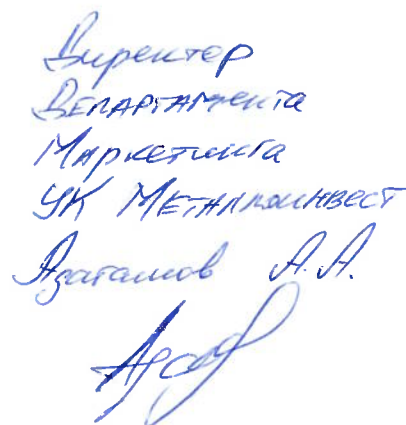 Директор
Департамента
Маркетинга
УК Металлоинвест
А.А.